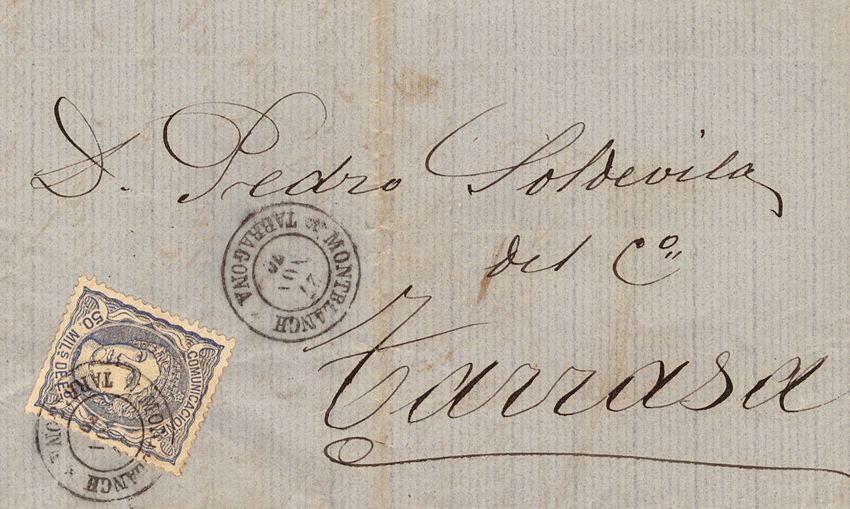 D. Pedro Soldevila
del Co.
Tarrasa
MONTBLANCH * TARRAGONA *
27
COMUNICACIONES
50 MILS DE E
MONTBLANCH